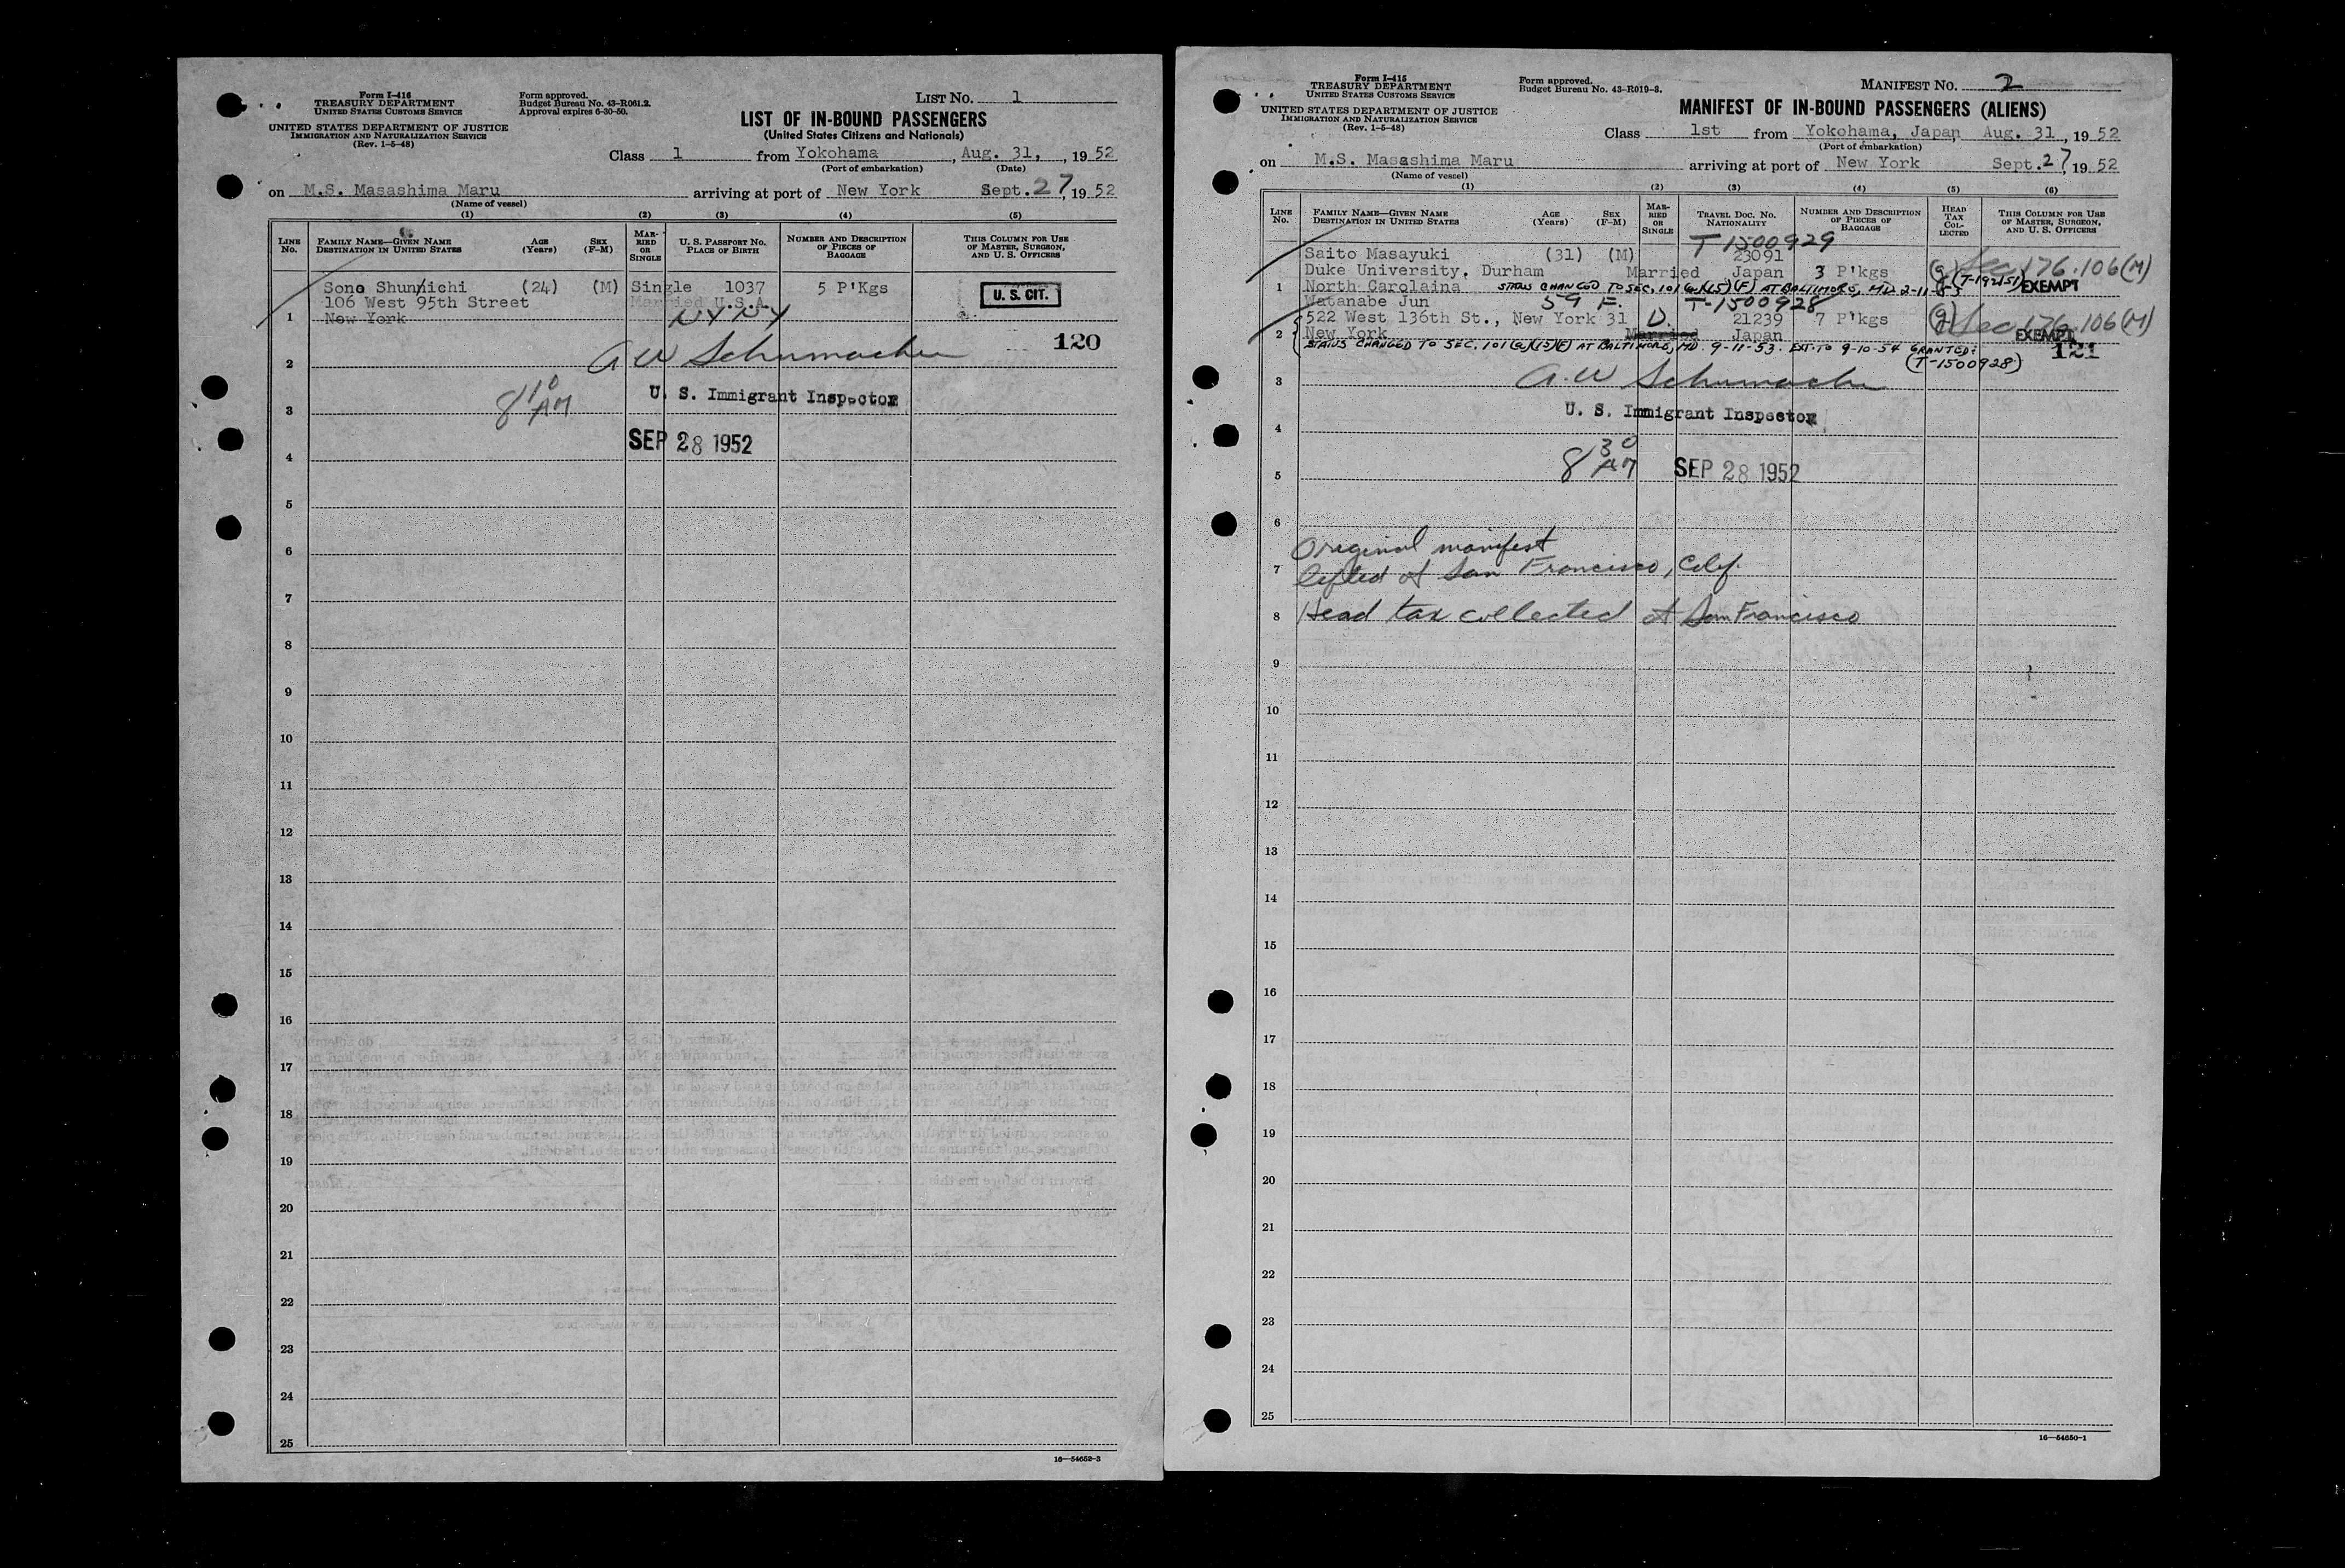 Form I-416
TREASURY DEPARTMENT
UNITED STATES CUSTOMS SERVICE
UNITED STATES DEPARTMENT OF JUSTICE
IMMIGRATION AND NATURALIZATION SERVICE
(Rev. 1-5-48)
Form approved.
Budget Bureau No. 43-R061.2.
Approval expires 6-30-50.
LIST NO. 1
LIST OF IN-BOUND PASSENGERS
(United States Citizens and Nationals)
Class 1 from Yokohama, Aug. 31, 1952
(Port of embarkation) (Date)
on M.S. Masashima Maru arriving at port of New York Sept. 27, 1952
(Name of vessel)
(1) (2) (3) (4) (5)
LINE NO.
FAMILY NAME—GIVEN NAME
DESTINATION IN UNITED STATES
AGE (Years)
SEX (F-M)
MARRIED OR SINGLE
U. S. PASSPORT NO.
PLACE OF BIRTH
NUMBER AND DESCRIPTION OF PIECES OF BAGGAGE
THIS COLUMN FOR USE OF MASTER, SURGEON, AND U. S. OFFICERS
Sono Shunnichi (24) (M) Single 1037 5 P'Kgs U. S. CIT.
106 West 95th Street Married U.S.A.
1 New York NY NY
120
2 A W Schumacher
8 10 AM U. S. Immigrant Inspector
3
SEP 28 1952
4
5
6
7
8
9
10
11
12
13
14
15
16
17
18
19
20
21
22
23
24
25
16—54652-3
Form I-415
TREASURY DEPARTMENT
UNITED STATES CUSTOMS SERVICE
UNITED STATES DEPARTMENT OF JUSTICE
IMMIGRATION AND NATURALIZATION SERVICE
(Rev. 1-5-48)
Form approved.
Budget Bureau No. 43-R019-3.
MANIFEST NO. 2
MANIFEST OF IN-BOUND PASSENGERS (ALIENS)
Class 1st from Yokohama, Japan, Aug. 31, 1952
(Port of embarkation)
on M.S. Masashima Maru arriving at port of New York Sept. 27, 1952
(Name of vessel)
(1) (2) (3) (4) (5) (6)
LINE NO.
FAMILY NAME—GIVEN NAME
DESTINATION IN UNITED STATES
AGE (Years)
SEX (F-M)
MARRIED OR SINGLE
TRAVEL DOC. NO.
NATIONALITY
NUMBER AND DESCRIPTION OF PIECES OF BAGGAGE
HEAD TAX COLLECTED
THIS COLUMN FOR USE OF MASTER, SURGEON, AND U. S. OFFICERS
T-1500929
Saito Masayuki (31) (M) 23091
Duke University, Durham Married Japan 3 P'kgs (g) Sec 176.106 (M)
1 North Carolaina STATUS CHANGED TO SEC. 101(a)(15)(F) AT BALTIMORE, MD 2-11-53 EXEMPT
Watanabe Jun 59 F. T-1500928
522 West 136th St., New York 31 D. 21239 7 P'kgs (g) Sec 176.106 (M)
2 New York Married Japan EXEMPT
STATUS CHANGED TO SEC. 101(a)(15)(F) AT BALTIMORE, MD. 9-11-53. EXT. TO 9-10-54 GRANTED. 121
(T-1500928)
3 A. W Schumacher
U. S. Immigrant Inspector
4
8 30 AM SEP 28 1952
5
6
Original manifest
7 lifted at San Francisco, Calif.
8 Head tax collected at San Francisco
9
10
11
12
13
14
15
16
17
18
19
20
21
22
23
24
25
16—54650-1